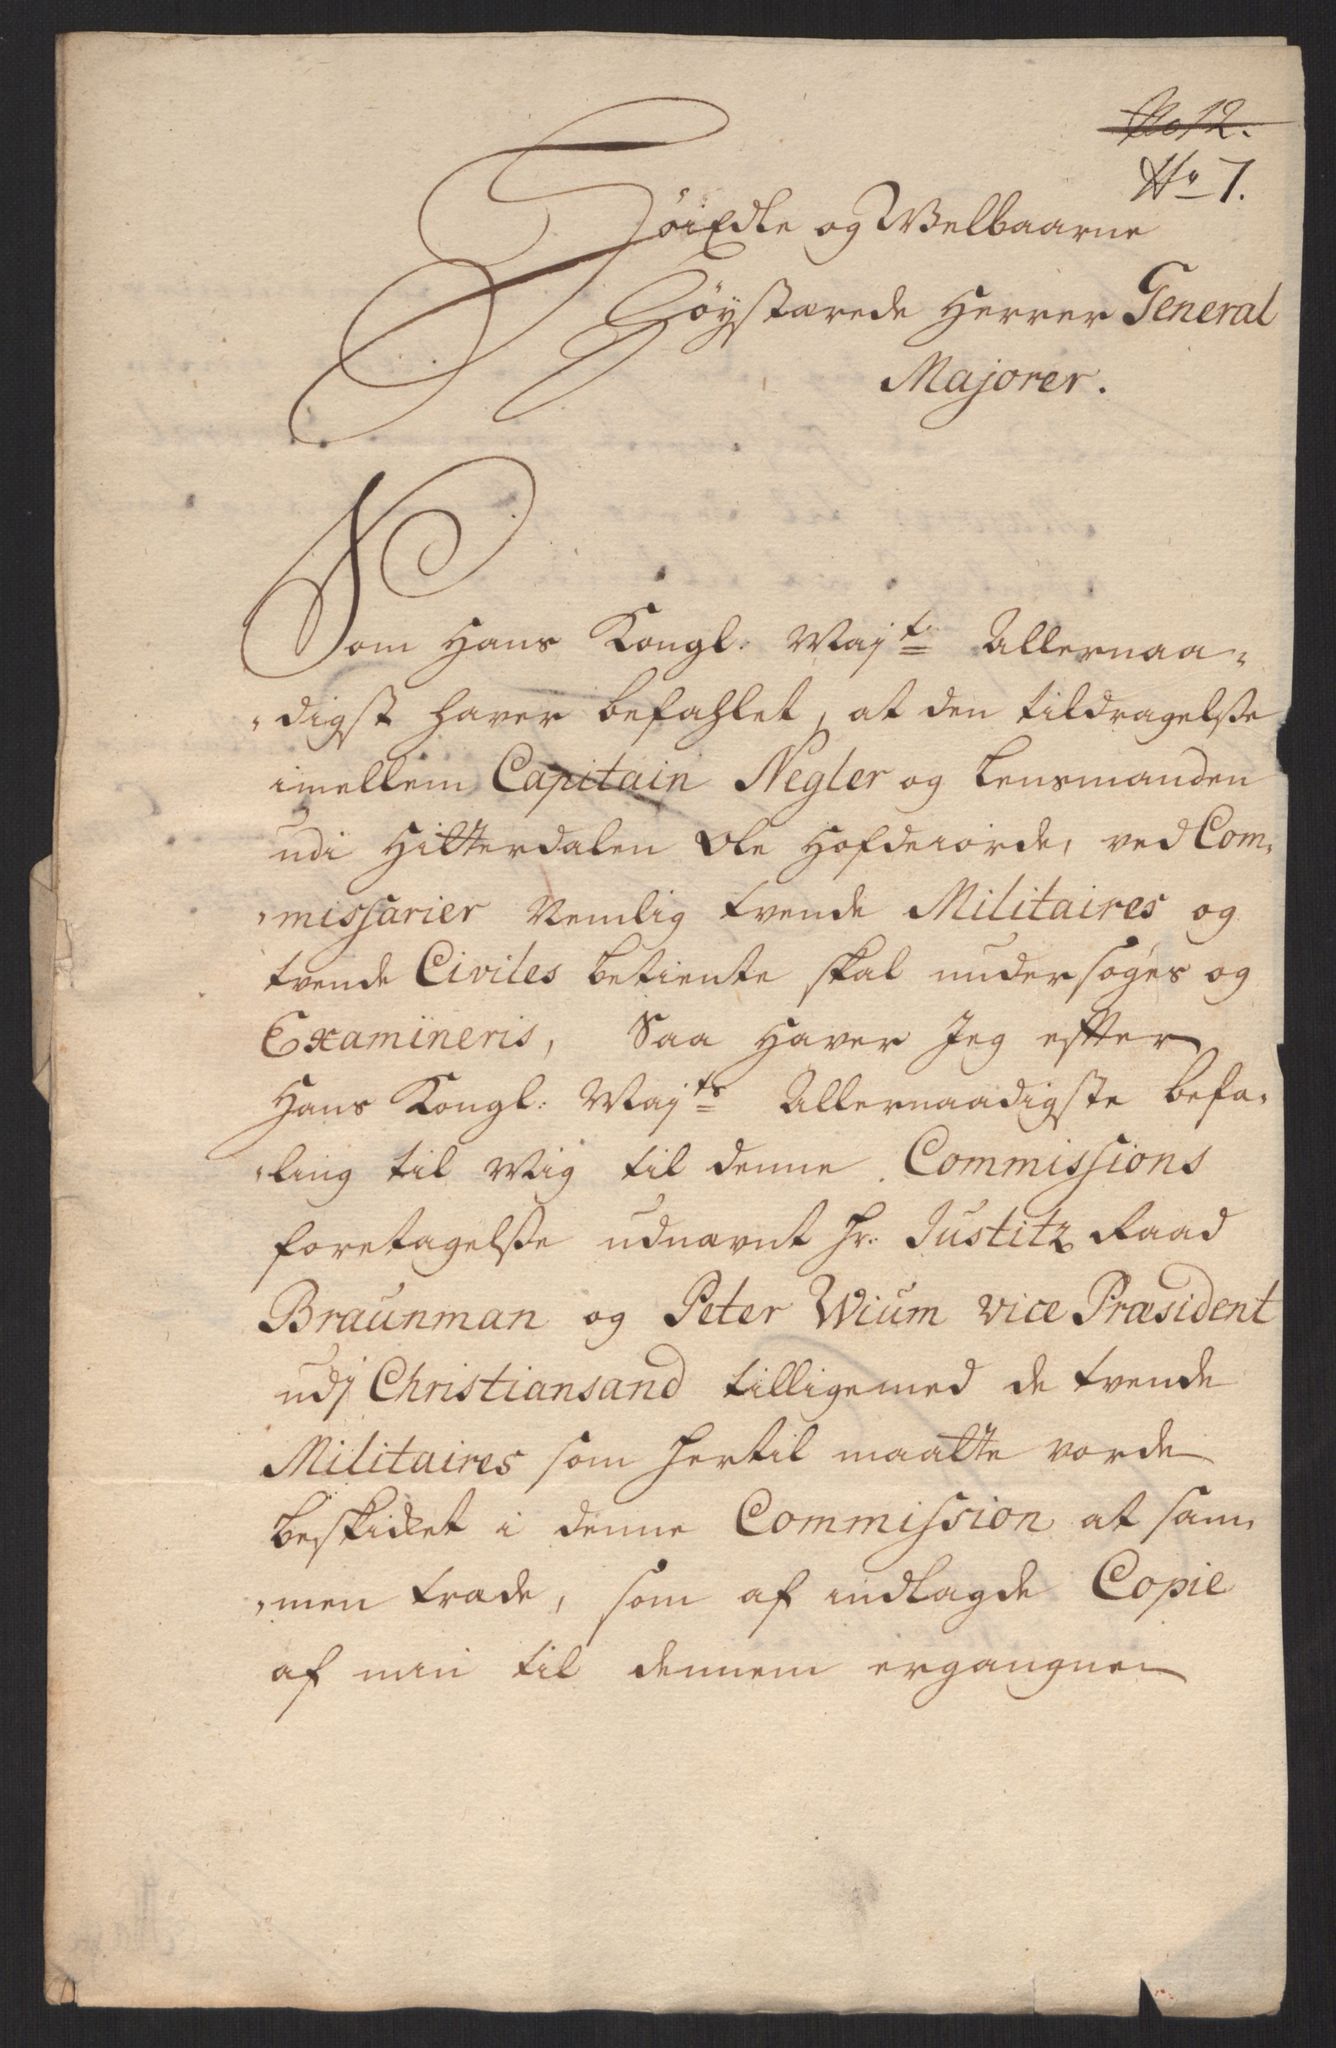 No 12.
No 7.
HöiEdle og Welbaarne
Höystærede Herrer General
Majorer.
Som Hans Kongl: Majt: Allernaa-
-digst haver befahlet, at den tildragelsse
imellem Capitain Negler og Lensmanden
udi Hitterdalen Ole Hofdeiorde, ved Com-
-missarier Nemlig tvende Militaires og
tvende Civiles betiente skal undersöges og
Examineris, Saa haver Jeg efter
Hans Kongl: Majts Allernaadigste befa-
-ling til Mig til denne Commissions
foretagelsse udnævnt Hr: Justitz Raad
Braunman og Peter Wium vice Præsident
udj Christiansand tilligemed de tvende
Militaires som hertil maatte vorde
beskicket i denne Commission at sam-
-men træde, som af indlagde Copie
af min til dennem ergangne